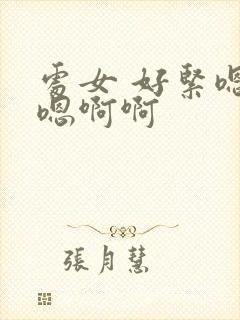 處女 好緊嗯
嗯啊啊
張月慧